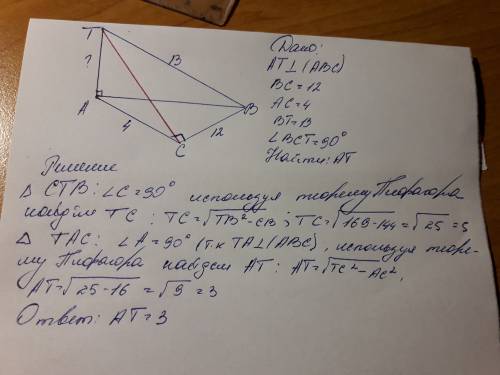 T
?
13
A
B
4
12
C
Дано:
AT⊥(ABC)
BC=12
AC=4
BT=13
∠BCT=90°
Найти: AT
Решение
Δ CTB: ∠C=90° используя теорему Пифагора
найдём TC : TC=√TB²-CB ; TC=√169-144=√25=5
Δ TAC: ∠A=90° (т.к TA⊥(ABC), используя теоре-
му Пифагора найдем AT: AT=√TC²-AC²,
AT=√25-16 =√9=3
Ответ: AT=3